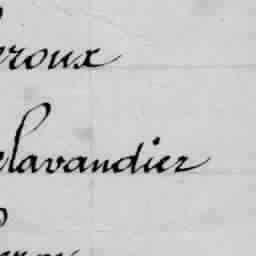 eroux
elavandier